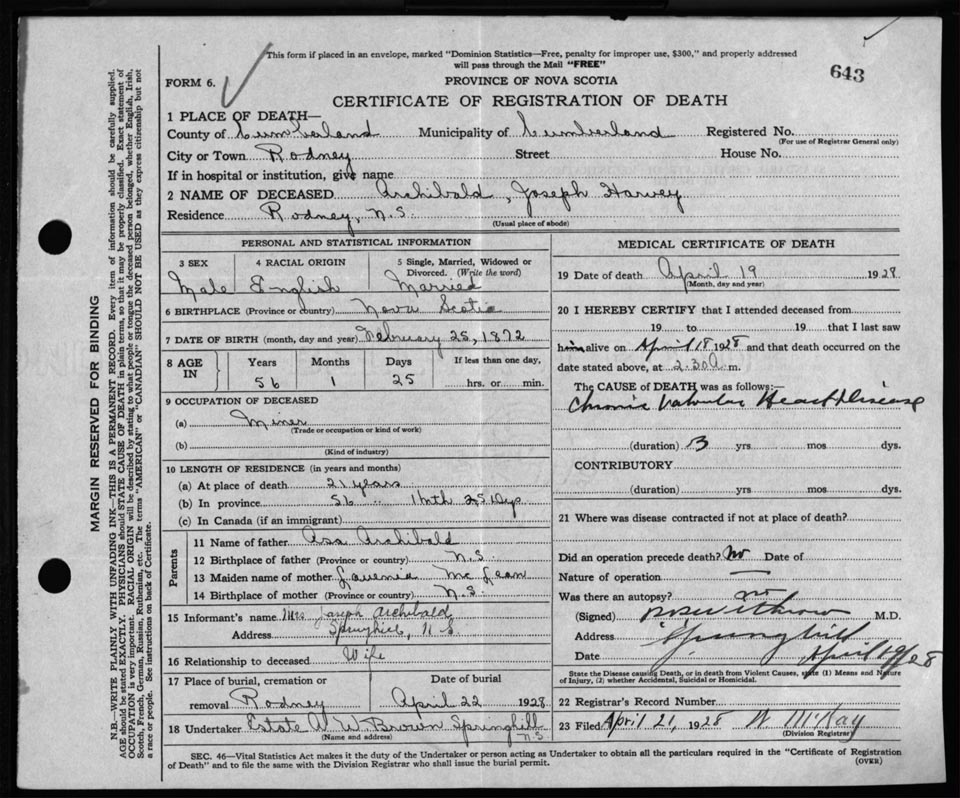 This form if placed in an envelope, marked "Dominion Statistics—Free, penalty for improper use, $300," and properly addressed
will pass through the Mail "FREE"
643
FORM 6.
PROVINCE OF NOVA SCOTIA
CERTIFICATE OF REGISTRATION OF DEATH
1 PLACE OF DEATH—
County of Cumberland Municipality of Cumberland Registered No.
(For use of Registrar General only)
City or Town Rodney Street House No.
If in hospital or institution, give name
2 NAME OF DECEASED Archibald, Joseph Harvey
Residence Rodney, N.S.
(Usual place of abode)
PERSONAL AND STATISTICAL INFORMATION
3 SEX 4 RACIAL ORIGIN 5 Single, Married, Widowed or
Divorced. (Write the word)
Male English Married
6 BIRTHPLACE (Province or country) Nova Scotia
7 DATE OF BIRTH (month, day and year) February 25, 1872
8 AGE IN Years Months Days If less than one day,
56 1 25 hrs. or min.
9 OCCUPATION OF DECEASED
(a) Miner
(Trade or occupation or kind of work)
(b)
(Kind of industry)
10 LENGTH OF RESIDENCE (in years and months)
(a) At place of death 21 years
(b) In province 56 " 1 Mth 25 Dys
(c) In Canada (if an immigrant)
Parents
11 Name of father Asa Archibald
12 Birthplace of father (Province or country) N.S.
13 Maiden name of mother Lavenia McLean
14 Birthplace of mother (Province or country) N.S.
15 Informant's name Mrs Joseph Archibald
Address Springhill, N S.
16 Relationship to deceased Wife
17 Place of burial, cremation or Date of burial
removal Rodney April 22 1928
18 Undertaker Estate A W Brown Springhill
(Name and address) N.S.
MEDICAL CERTIFICATE OF DEATH
19 Date of death April 19 1928
(Month, day and year)
20 I HEREBY CERTIFY that I attended deceased from
19 to 19 that I last saw
him alive on April 18 1928 and that death occurred on the
date stated above, at 2.30 a. m.
The CAUSE OF DEATH was as follows:—
Chronic Valvular Heart Disease
(duration) 3 yrs mos dys.
CONTRIBUTORY
(duration) yrs. mos. dys.
21 Where was disease contracted if not at place of death?
Did an operation precede death? No Date of
Nature of operation —
Was there an autopsy? no
(Signed) M.D.
Address Springhill
Date April 19/28
State the Disease causing Death, or in death from Violent Causes, state (1) Means and Nature
of Injury, (2) whether Accidental, Suicidal or Homicidal.
22 Registrar's Record Number
23 Filed April 21, 1928 W McKay
(Division Registrar)
SEC. 46—Vital Statistics Act makes it the duty of the Undertaker or person acting as Undertaker to obtain all the particulars required in the "Certificate of Registration
of Death" and to file the same with the Division Registrar who shall issue the burial permit.
(OVER)
MARGIN RESERVED FOR BINDING
N.B.—WRITE PLAINLY, WITH UNFADING INK—THIS IS A PERMANENT RECORD. Every item of information should be carefully supplied.
AGE should be stated EXACTLY. PHYSICIANS should STATE CAUSE OF DEATH in plain terms, so that it may be properly classified. Exact statement of
OCCUPATION is very important. RACIAL ORIGIN will be described by stating to what people or tongue the deceased person belonged, whether English, Irish,
Scotch, French, German, Russian, Ruthenian, etc. The terms "AMERICAN" or "CANADIAN" SHOULD NOT BE USED as they express citizenship but not
a race or people. See instructions on back of Certificate.